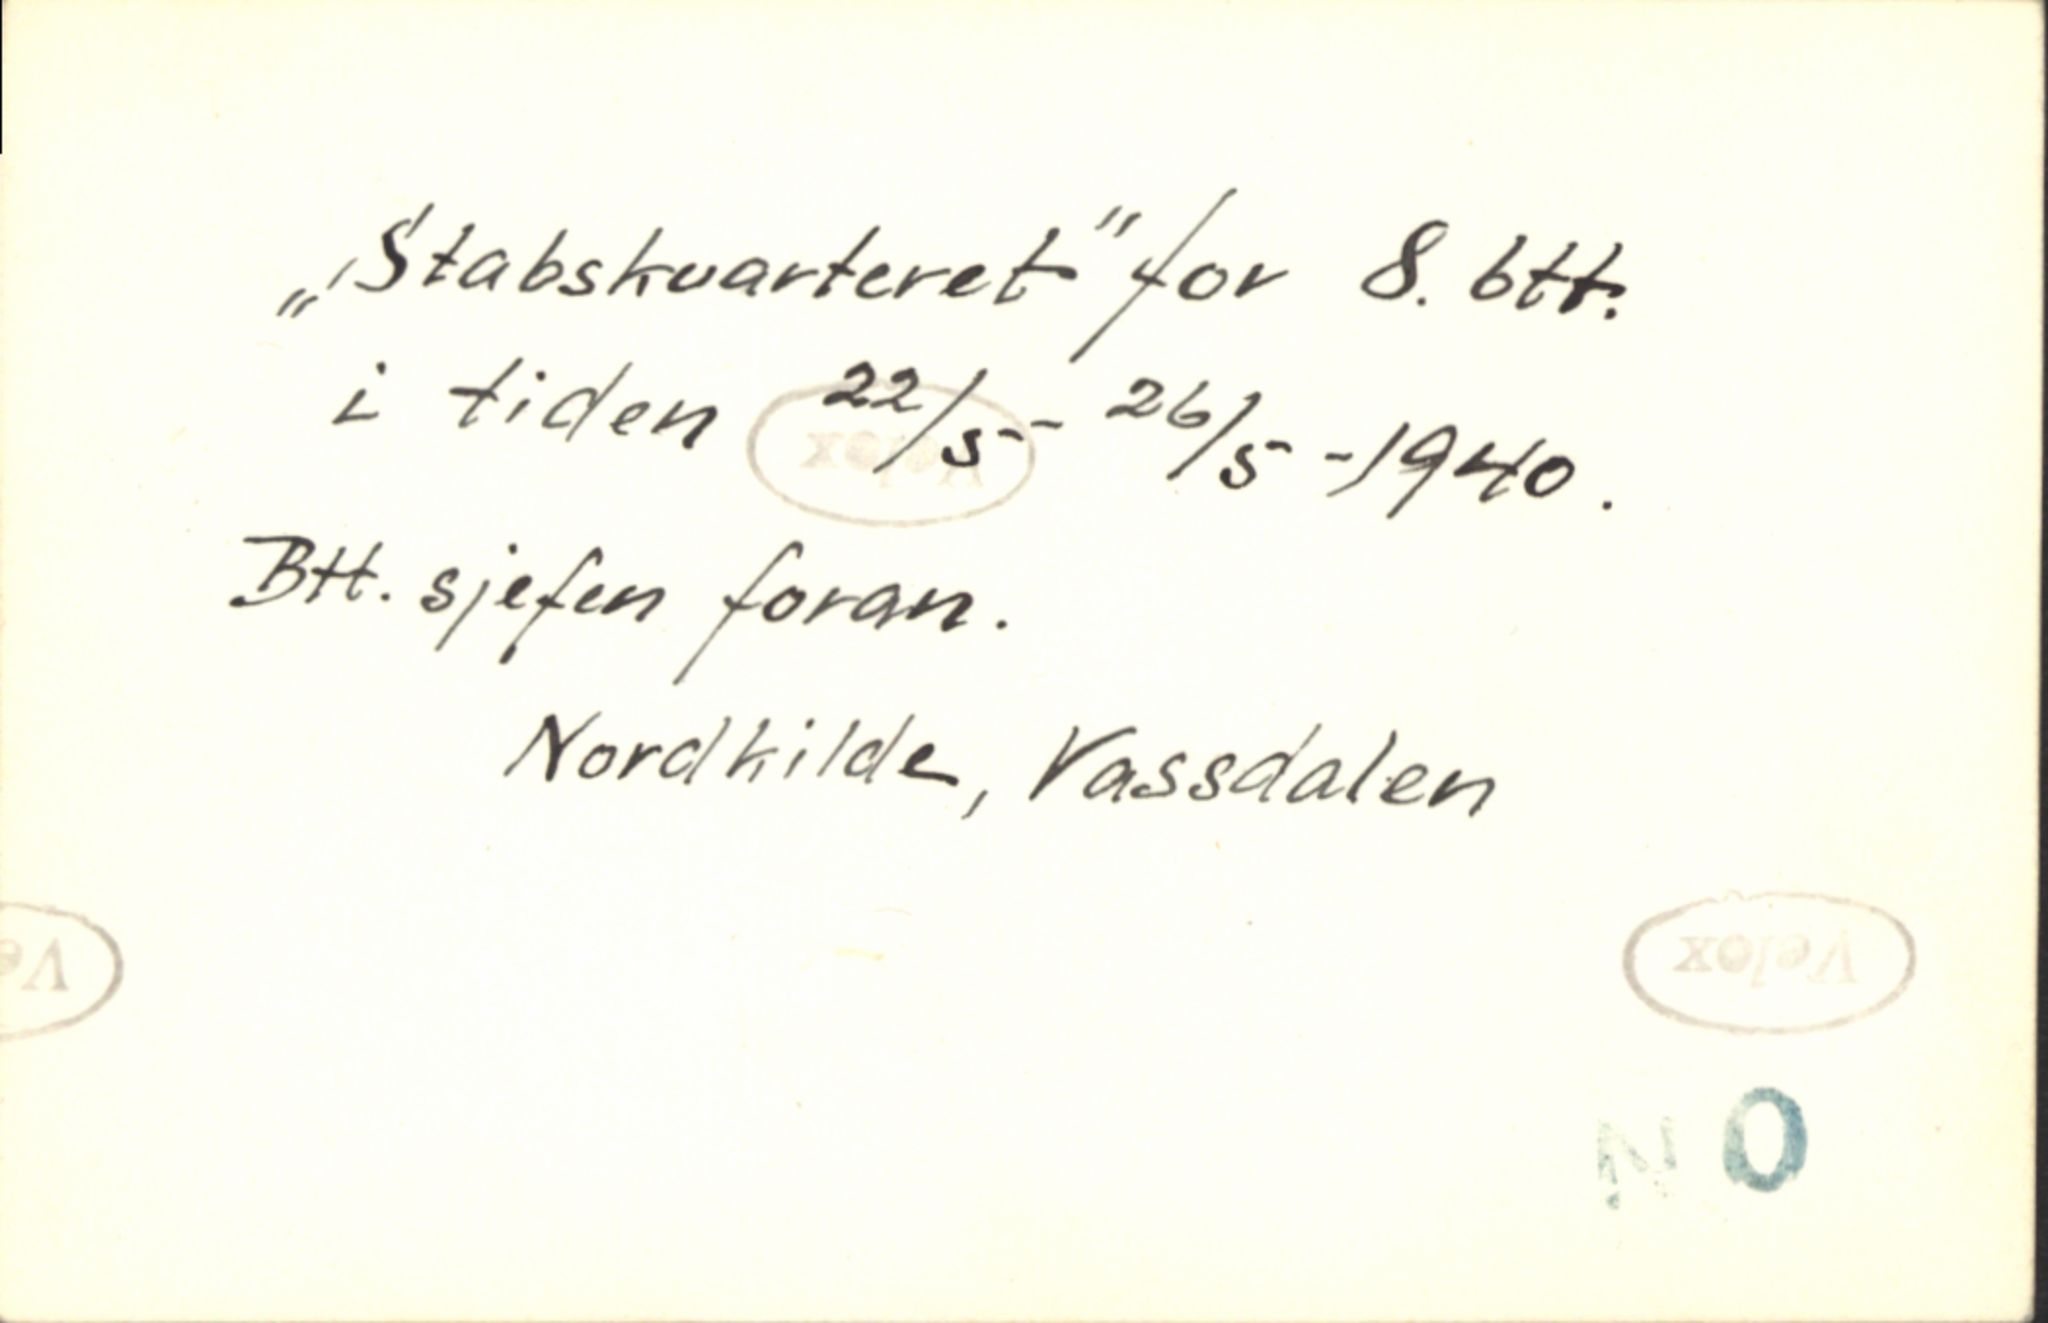 „Stabskvarteret” for 8. btt.
i tiden 22/5 - 26/5 - 1940.
Btt. sjefen foran.
Nordkilde, Vassdalen
Velox
Ve
Velox
NO